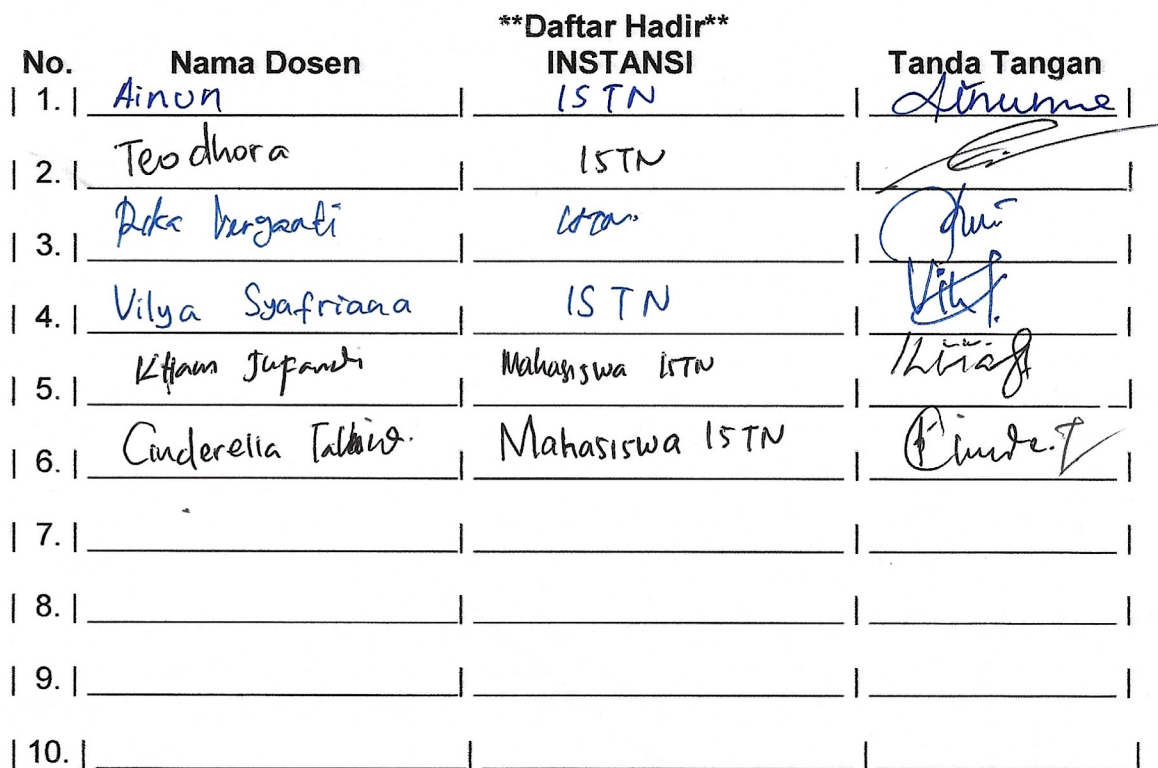 **Daftar Hadir**
No. Nama Dosen INSTANSI Tanda Tangan
| 1. | Ainun | ISTN | Ainunne |
| 2. | Teodhora | ISTN |
| 3. | Rika | ISTN |
| 4. | Vilya Syafriana | ISTN |
| 5. | Jupandi | Mahasiswa ISTN |
| 6. | Cinderella | Mahasiswa ISTN |
| 7. | | | |
| 8. | | | |
| 9. | | | |
| 10. | | | |